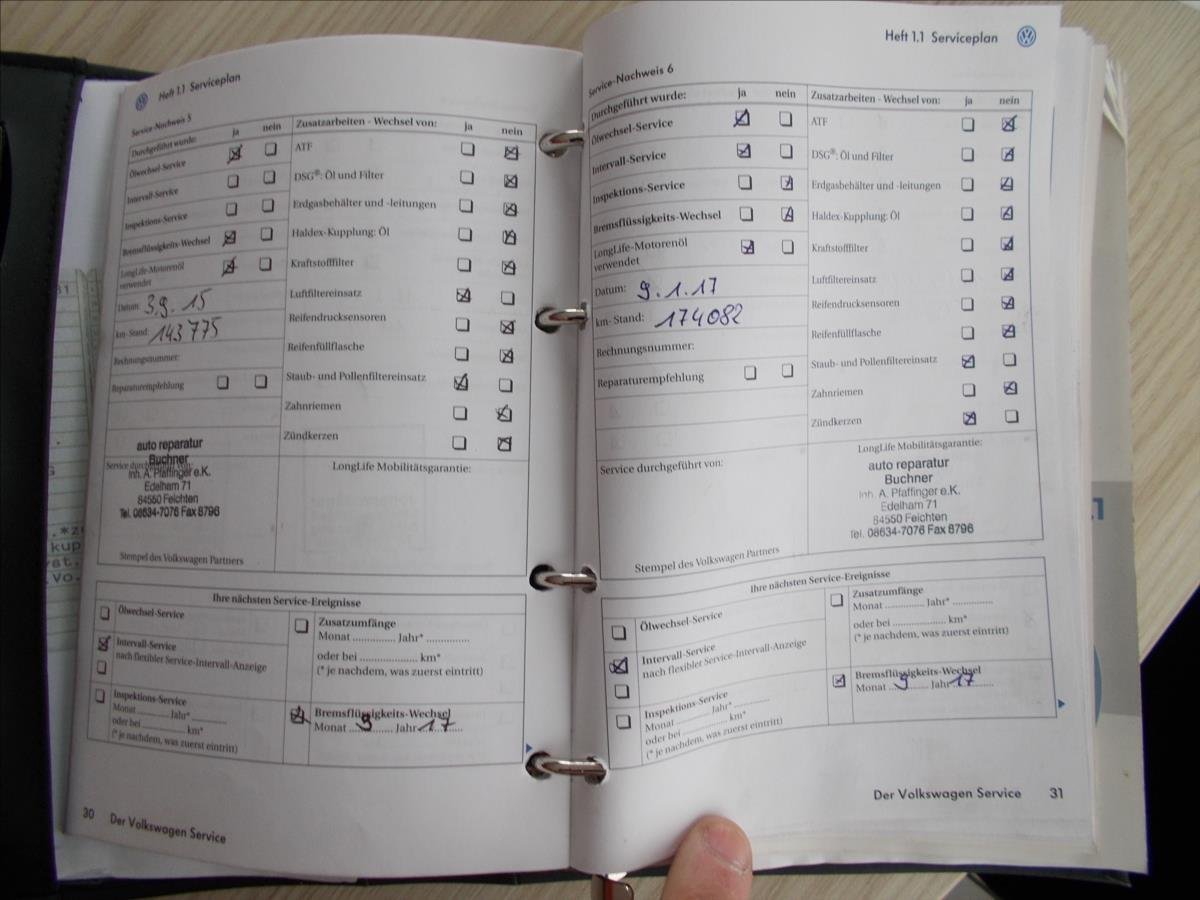 Heft 1.1 Serviceplan
Service-Nachweis 5
Durchgeführt wurde: ja nein
Ölwechsel-Service
Intervall-Service
Inspektions-Service
Bremsflüssigkeits-Wechsel
LongLife-Motorenöl
verwendet
Datum: 3.9.15
km-Stand: 143775
Rechnungsnummer:
Reparaturempfehlung
auto reparatur
Buchner
Service durchgeführt von:
Inh. A. Pfaffinger e.K.
Edelham 71
84550 Feichten
Tel. 08634-7076 Fax 8796
Stempel des Volkswagen Partners
Zusatzarbeiten - Wechsel von: ja nein
ATF
DSG®: Öl und Filter
Erdgasbehälter und -leitungen
Haldex-Kupplung: Öl
Kraftstofffilter
Luftfiltereinsatz
Reifendrucksensoren
Reifenfüllflasche
Staub- und Pollenfiltereinsatz
Zahnriemen
Zündkerzen
LongLife Mobilitätsgarantie:
Ihre nächsten Service-Ereignisse
Ölwechsel-Service
Intervall-Service
nach flexibler Service-Intervall-Anzeige
Inspektions-Service
Monat ............ Jahr* ............
oder bei .................... km*
(* je nachdem, was zuerst eintritt)
Zusatzumfänge
Monat ............ Jahr* ............
oder bei .................... km*
(* je nachdem, was zuerst eintritt)
Bremsflüssigkeits-Wechsel
Monat 9 Jahr 17
30 Der Volkswagen Service
Heft 1.1 Serviceplan
Service-Nachweis 6
Durchgeführt wurde: ja nein
Ölwechsel-Service
Intervall-Service
Inspektions-Service
Bremsflüssigkeits-Wechsel
LongLife-Motorenöl
verwendet
Datum: 9.1.17
km-Stand: 174082
Rechnungsnummer:
Reparaturempfehlung
Service durchgeführt von:
Stempel des Volkswagen Partners
Zusatzarbeiten - Wechsel von: ja nein
ATF
DSG®: Öl und Filter
Erdgasbehälter und -leitungen
Haldex-Kupplung: Öl
Kraftstofffilter
Luftfiltereinsatz
Reifendrucksensoren
Reifenfüllflasche
Staub- und Pollenfiltereinsatz
Zahnriemen
Zündkerzen
LongLife Mobilitätsgarantie:
auto reparatur
Buchner
Inh. A. Pfaffinger e.K.
Edelham 71
84550 Feichten
Tel. 08634-7076 Fax 8796
Ihre nächsten Service-Ereignisse
Ölwechsel-Service
Intervall-Service
nach flexibler Service-Intervall-Anzeige
Inspektions-Service
Monat ............ Jahr* ............
oder bei .................... km*
(* je nachdem, was zuerst eintritt)
Zusatzumfänge
Monat ............ Jahr* ............
oder bei .................... km*
(* je nachdem, was zuerst eintritt)
Bremsflüssigkeits-Wechsel
Monat 9 Jahr 17
Der Volkswagen Service 31